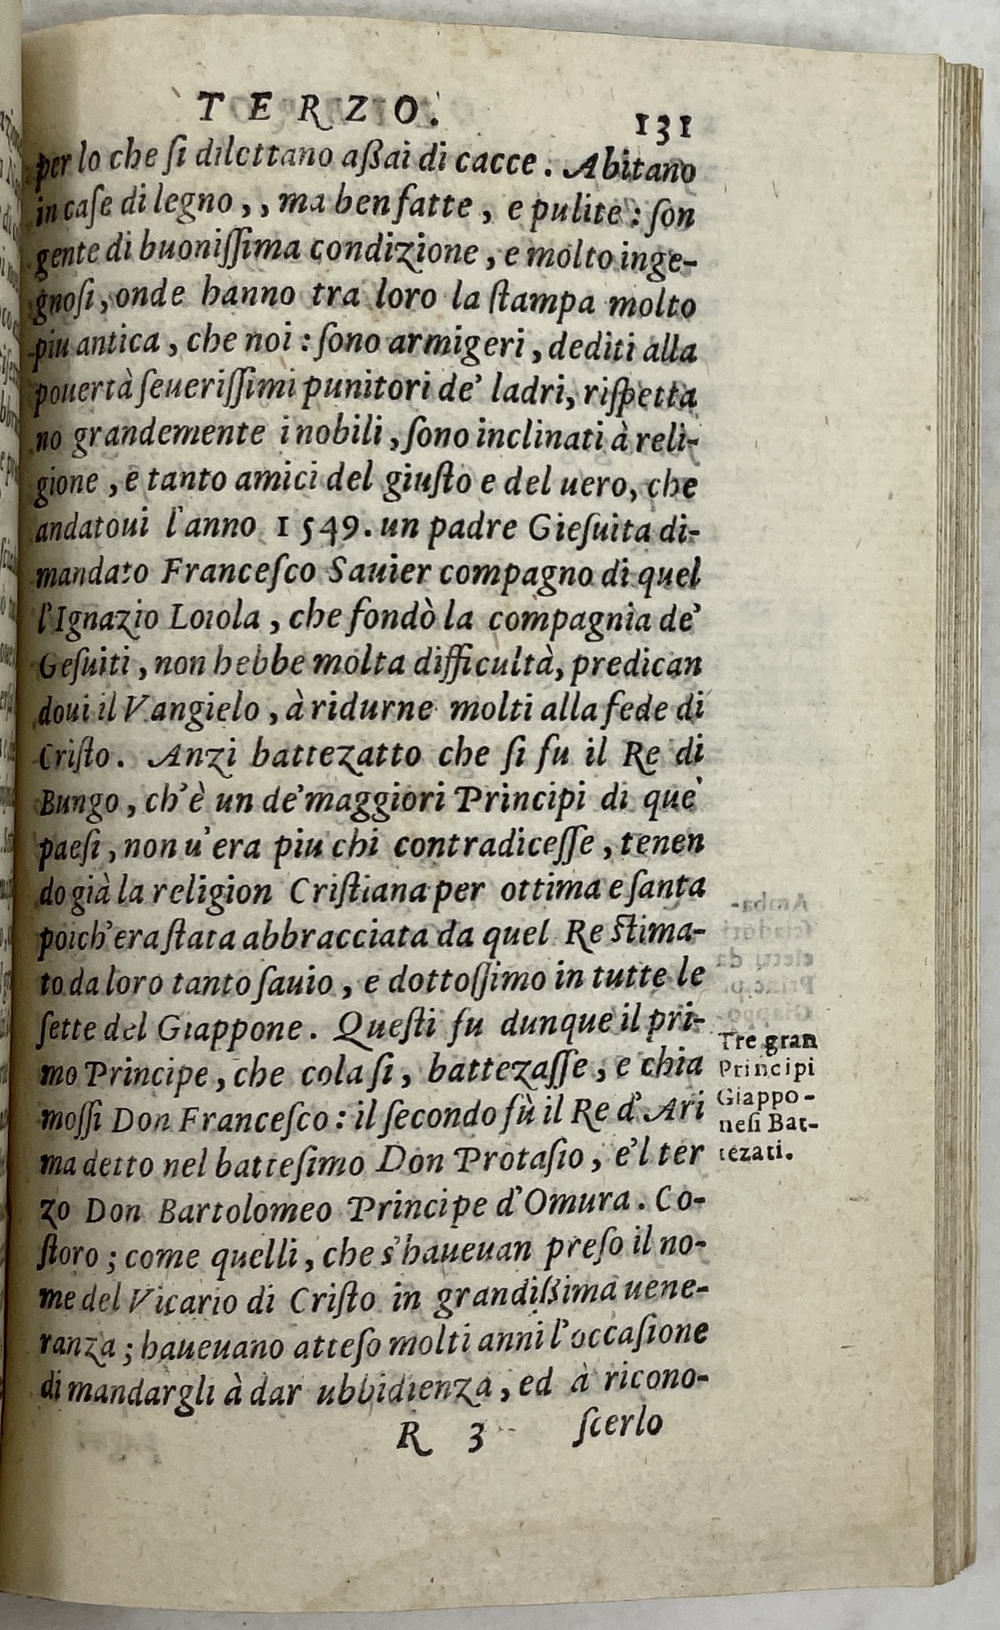 TERZO.
131
per lo che ſi dilettano aßai di cacce. Abitano
in caſe di legno,, ma ben fatte, e pulite: ſon
gente di buoniſſima condizione, e molto inge-
gnoſi, onde hanno tra loro la ſtampa molto
piu antica, che noi: ſono armigeri, dediti alla
pouertà ſeueriſſimi punitori de' ladri, riſpetta
no grandemente i nobili, ſono inclinati à reli-
gione, e tanto amici del giuſto e del uero, che
andatoui l'anno 1549. un padre Gieſuita di-
mandato Franceſco Sauier compagno di quel
l'Ignazio Loiola, che fondò la compagnia de'
Geſuiti, non hebbe molta difficultà, predican
doui il Vangielo, à ridurne molti alla fede di
Criſto. Anzi battezatto che ſi fu il Re di
Bungo, ch'è un de'maggiori Principi di que'
paeſi, non u'era piu chi contradiceſſe, tenen
do già la religion Criſtiana per ottima e ſanta
poich'era ſtata abbracciata da quel Re ſtima-
to da loro tanto ſauio, e dottoſſimo in tutte le
ſette del Giappone. Queſti fu dunque il pri-
mo Principe, che cola ſi, battezaſſe, e chia
moſſi Don Franceſco: il ſecondo fù il Re d'Ari
ma detto nel batteſimo Don Protaſio, e'l ter
zo Don Bartolomeo Principe d'Omura. Co-
ſtoro; come quelli, che s'haueuan preſo il no-
me del Vicario di Criſto in grandißima uene-
ranza; haueuano atteſo molti anni l'occaſione
di mandargli à dar ubbidienza, ed à ricono-
R 3
ſcerlo
Tre gran
Principi
Giappo-
neſi Bat-
tezati.